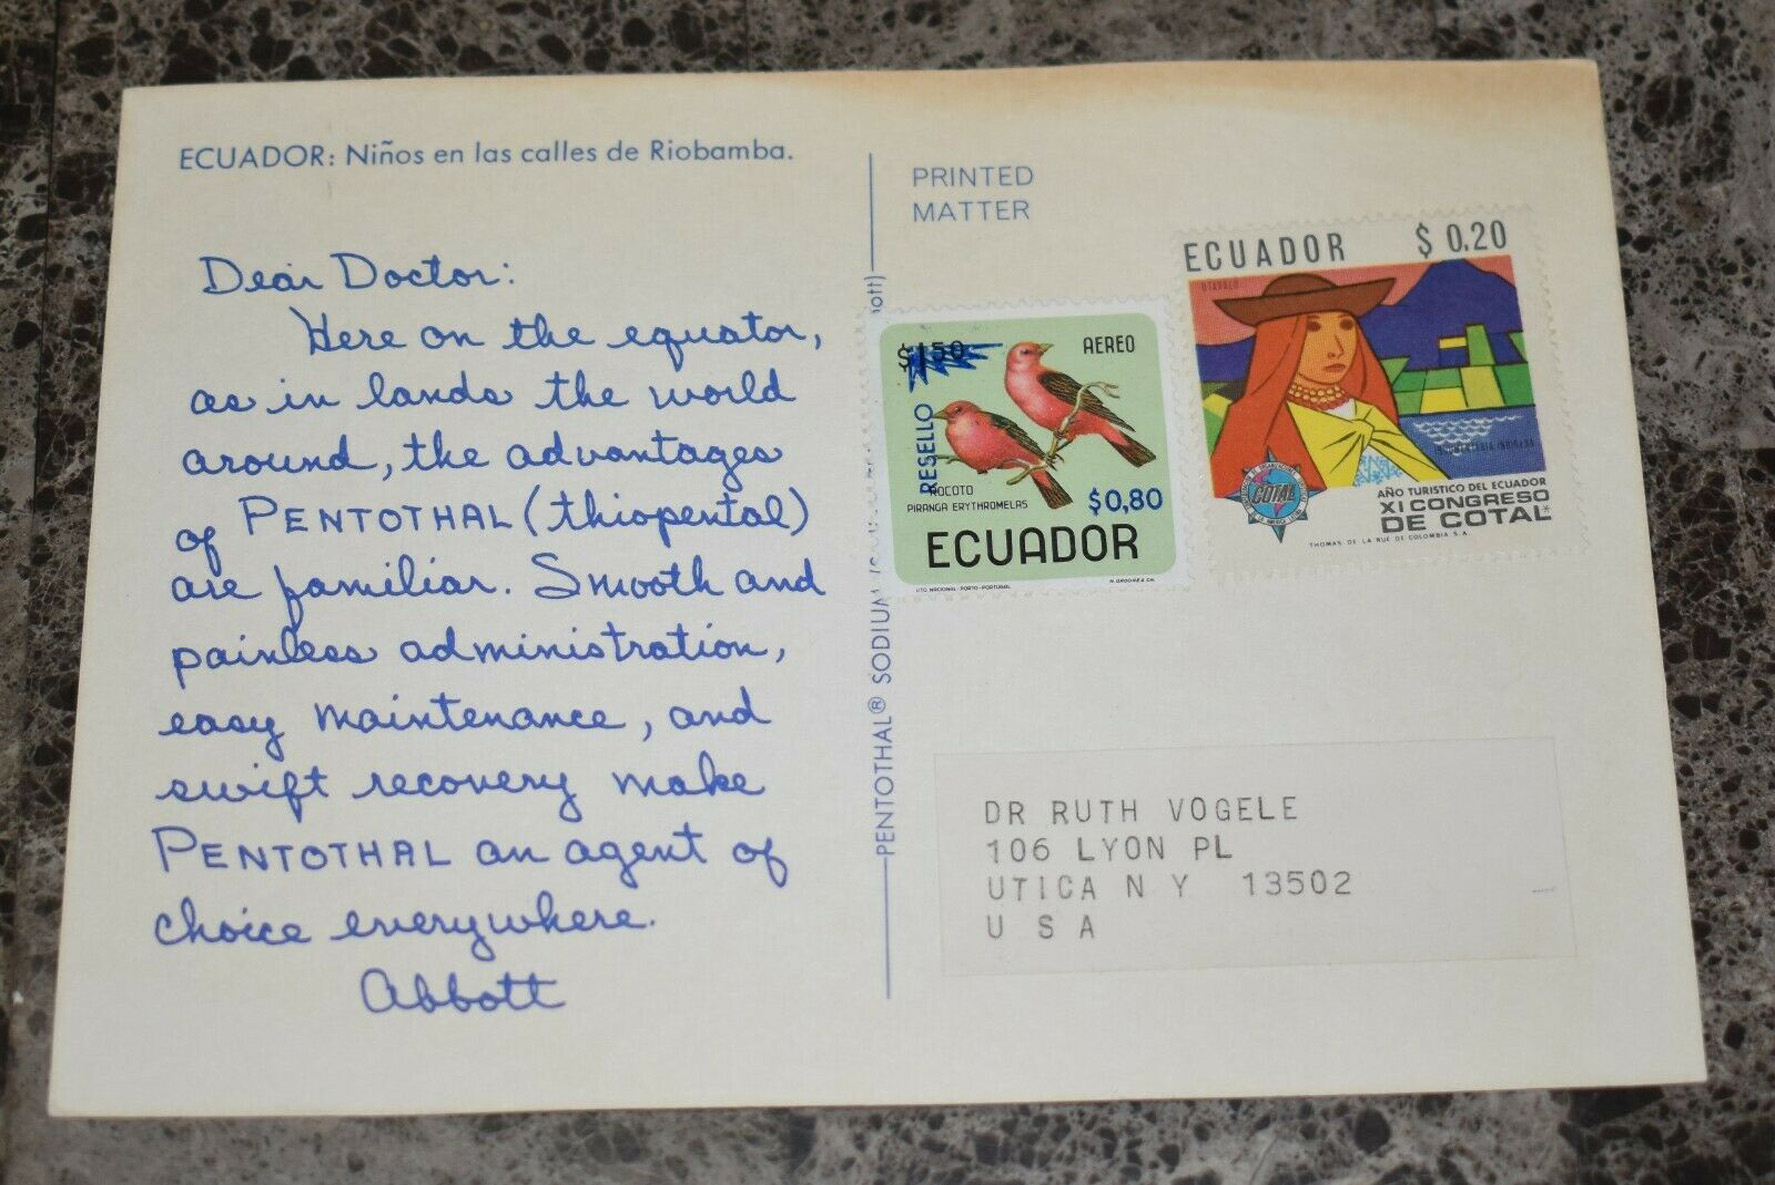 ECUADOR: Niños en las calles de Riobamba.
Dear Doctor:
Here on the equator,
as in lands the world
around, the advantages
of PENTOTHAL (thiopental)
are familiar. Smooth and
painless administration,
easy maintenance, and
swift recovery make
PENTOTHAL an agent of
choice everywhere.
Abbott
PENTOTHAL® SODIUM
ott)
PRINTED
MATTER
$1,50
AEREO
RESELLO
ROCOTO
PIRANGA ERYTHROMELAS
$0,80
ECUADOR
LITO NACIONAL · PORTO-PORTUGAL
ECUADOR $ 0.20
OTAVALO
COTAL
AÑO TURISTICO DEL ECUADOR
XI CONGRESO
DE COTAL
THOMAS DE LA RUE DE COLOMBIA S.A.
DR RUTH VOGELE
106 LYON PL
UTICA N Y 13502
U S A